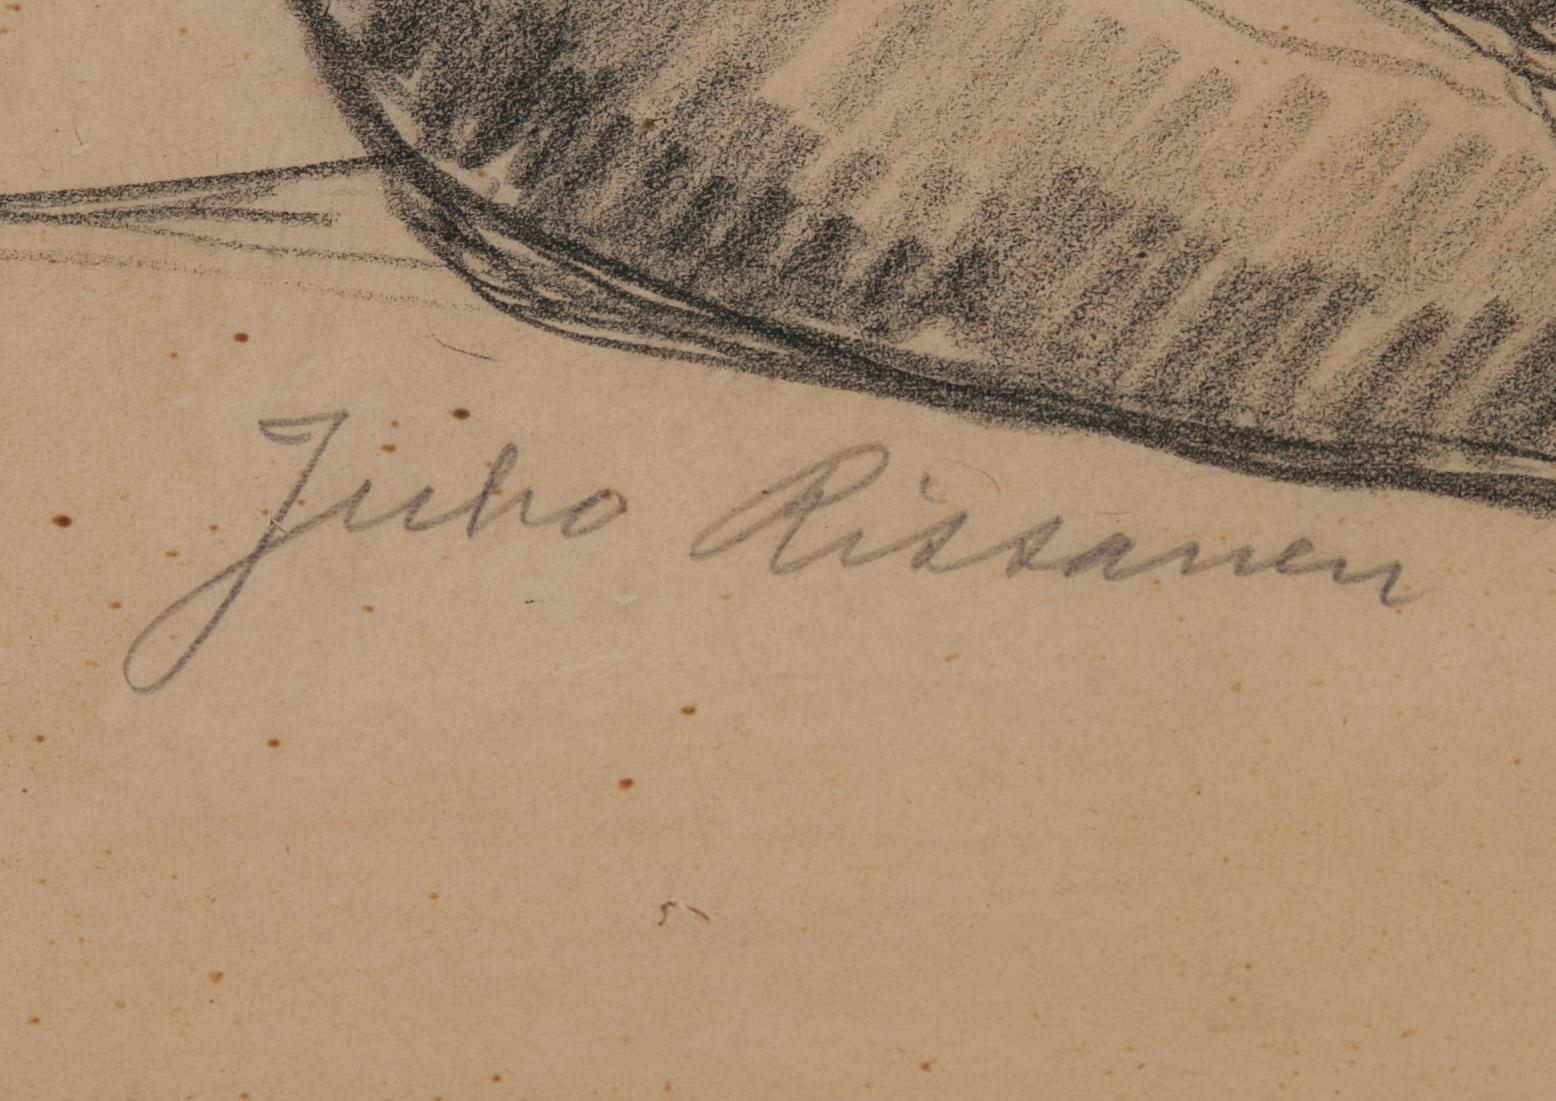 Juho Rissanen